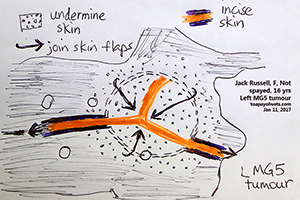 undermine
skin
Incise
skin
join skin flaps
Jack Russell, F, Not
spayed, 16 yrs
Left MG5 tumour
toapayohvets.com
Jan 11, 2017
L MG5
tumour